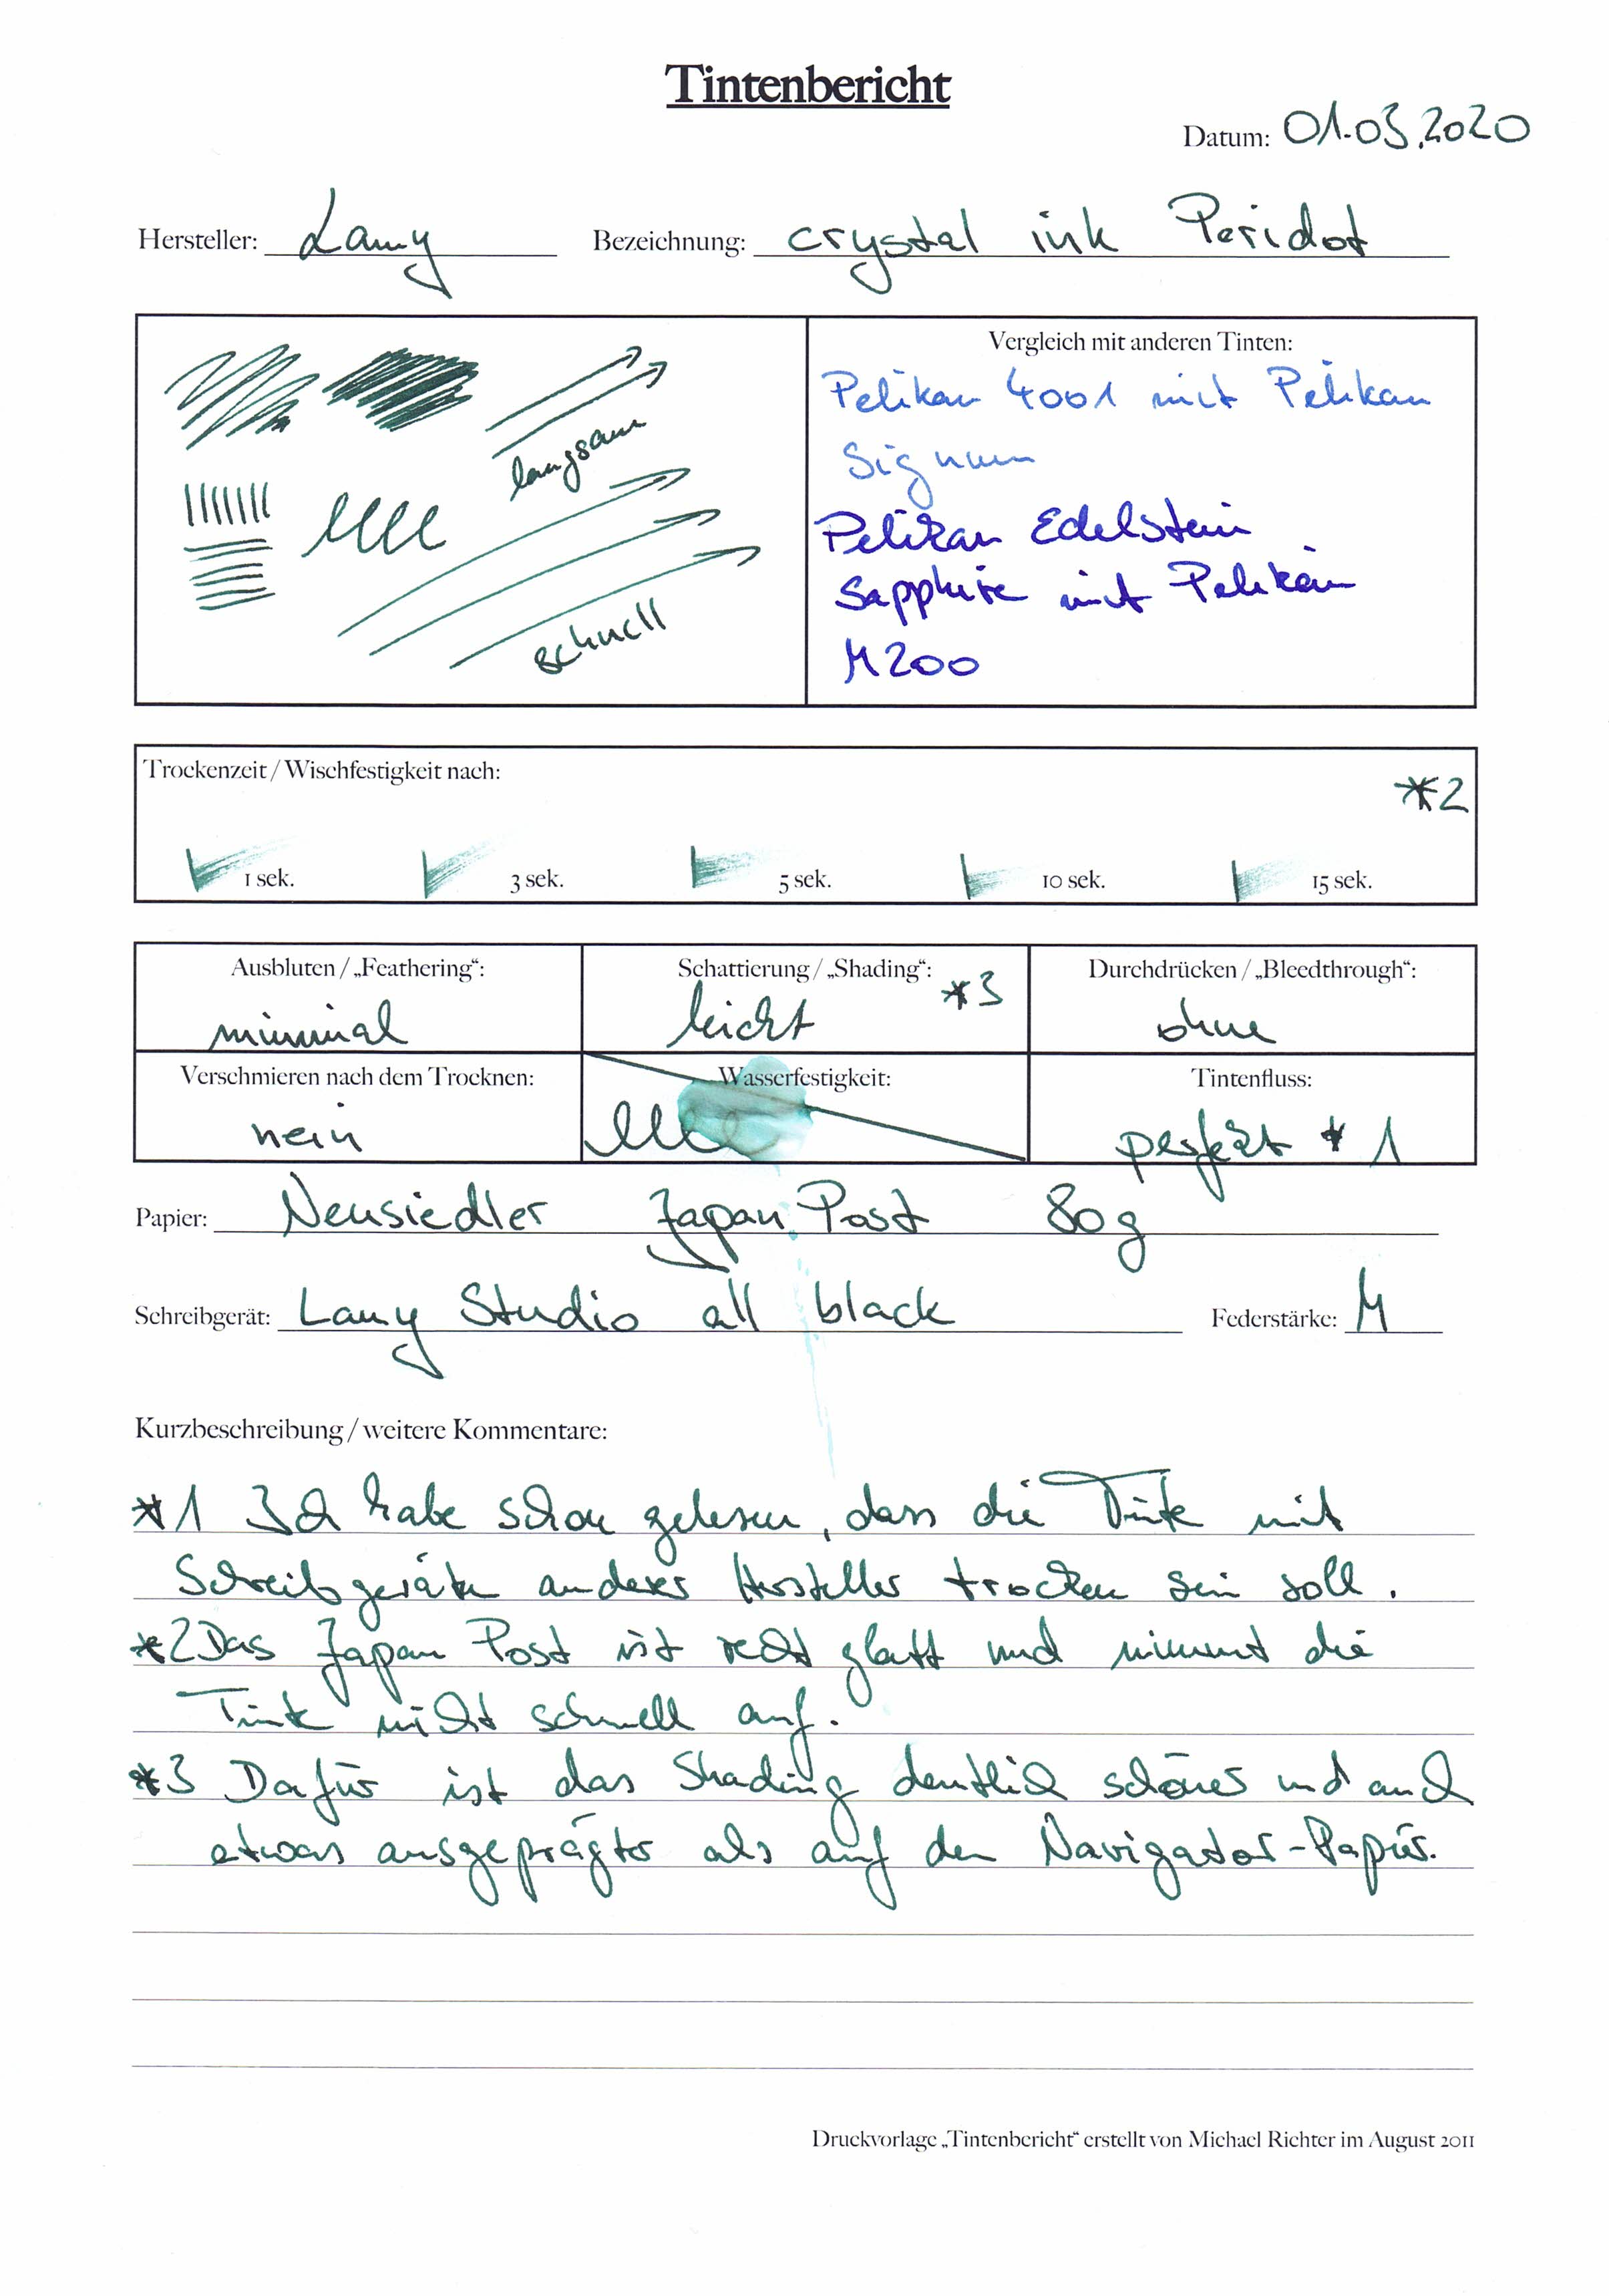 Tintenbericht
Datum: 01.03.2020
Hersteller: Lamy Bezeichnung: crystal ink Peridot
langsam
schnell
Vergleich mit anderen Tinten:
Pelikan 4001 mit Pelikan
Signum
Pelikan Edelstein
Sapphire mit Pelikan
M200
Trockenzeit / Wischfestigkeit nach: *2
1 sek. 3 sek. 5 sek. 10 sek. 15 sek.
Ausbluten / „Feathering“: Schattierung / „Shading“: *3 Durchdrücken / „Bleedthrough“:
minimal leicht ohne
Verschmieren nach dem Trocknen: Wasserfestigkeit: Tintenfluss:
nein perfekt *1
Papier: Neusiedler Japan Post 80g
Schreibgerät: Lamy Studio all black Federstärke: M
Kurzbeschreibung / weitere Kommentare:
*1 Ich habe schon gelesen, dass die Tinte mit
Schreibgeräte anderer Hersteller trocken sein soll.
*2 Das Japan Post ist recht glatt und nimmt die
Tinte nicht schnell auf.
*3 Dafür ist das Shading deutlich schöner und auch
etwas ausgeprägter als auf den Navigator-Papier.
Druckvorlage „Tintenbericht“ erstellt von Michael Richter im August 2011